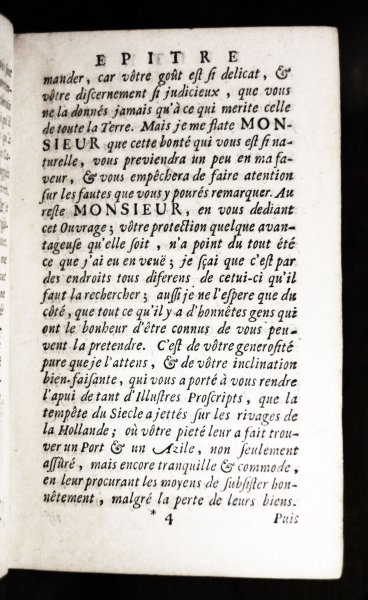 EPITRE
mander, car vôtre goût est si delicat, &
vôtre discernement si judicieux, que vous
ne la donnés jamais qu'à ce qui merite celle
de toute la Terre. Mais je me flate MON-
SIEUR que cette bonté qui vous est si na-
turelle, vous previendra un peu en ma fa-
veur, & vous empêchera de faire atention
sur les fautes que vous y pourés remarquer. Au
reste MONSIEUR, en vous dediant
cet Ouvrage; vôtre protection quelque avan-
tageuse qu'elle soit, n'a point du tout été
ce que j'ai eu en veuë; je sçai que c'est par
des endroits tous diferens de cetui-ci qu'il
faut la rechercher; aussi je ne l'espere que du
côté, que tout ce qu'il y a d'honnêtes gens qui
ont le bonheur d'être connus de vous peu-
vent la pretendre. C'est de vôtre generosité
pure que je l'attens, & de vôtre inclination
bien-faisante, qui vous a porté à vous rendre
l'apui de tant d'Illustres Proscripts, que la
tempête du Siecle a jettés sur les rivages de
la Hollande; où vôtre pieté leur a fait trou-
ver un Port & un Azile, non seulement
assûré, mais encore tranquille & commode,
en leur procurant les moyens de subsister hon-
nêtement, malgré la perte de leurs biens.
* 4 Puis